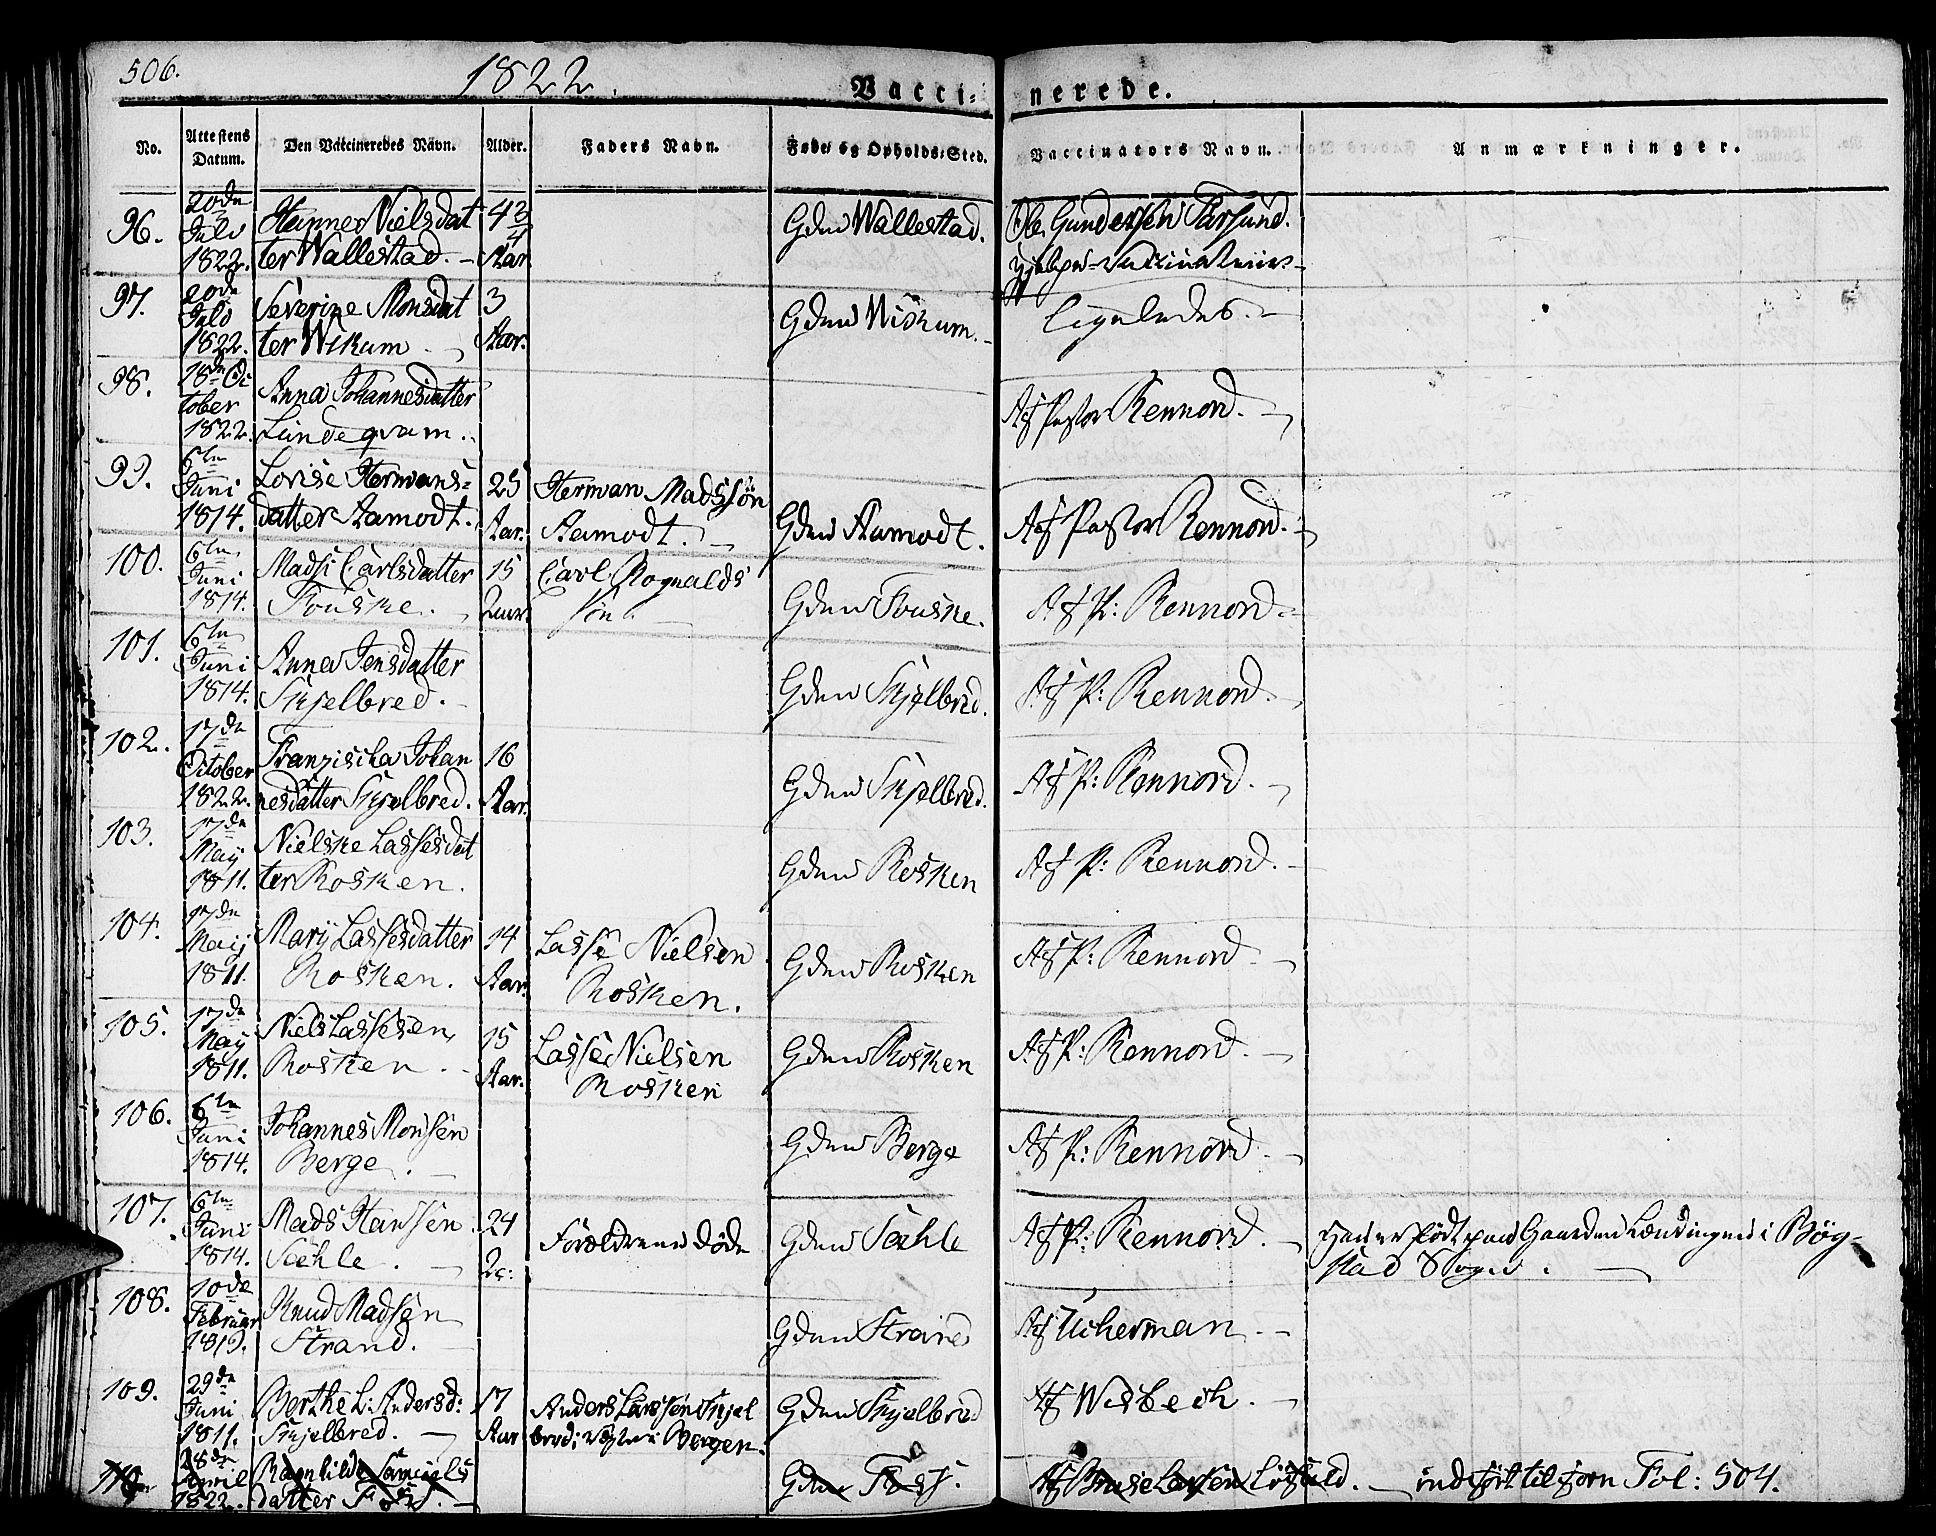 506.
1822.
Vacci-nerede.
No.
Attestens Datum.
Den Vaccineredes Navn.
Alder.
Faders Navn.
Føde og Opholds-Sted.
Vaccinators Navn.
Anmærkninger.
96.
20de July 1822.
Hanne Nielsdat
ter Wallestad.
4 3/4 Aar
Gden Wallestad.
Ole Gundersen Farsund.
97.
20de July 1822.
Severine Monsdat
ter Wikum
3 Aar.
Gden Wikum.
Ligeledes.
98.
18de Oc
tober
1822.
Anna Johannesdatter
Lundeqvam.
Af Pastor Rennord.
99.
6te Juni 1814.
Lovise Hermans-
datter Aamodt.
25 Aar.
Herman Madssøn
Aamodt.
Gden Aamodt.
Af Pastor Rennord.
100.
6te Juni 1814.
Madsi Carlsdatter
Fouske.
15 Aar.
Carl Rognalds
søn.
Gden Fouske.
Af P: Rennord.
101.
6te Juni 1814.
Anne Jensdatter
Skjelbred.
Gden Skjelbred.
Af P: Rennord.
102.
17de October 1822.
Franziska Johan
nesdatter Skjelbred.
16 Aar.
Gden Skjelbred.
Af P: Rennord.
103.
17de May 1811.
Nielske Lassesdat
ter Rosken.
Gden Rosken
Af P: Rennord.
104.
17de Maij 1811.
Marij Lassesdatter
Rosken.
14 Aar.
Lasse Nielsen
Rosken.
Gden Rosken
Af P: Rennord.
105.
17de Maij 1811.
Niels Lassesen
Rosken.
15 Aar.
Lasse Nielsen
Rosken
Gden Rosken
Af P: Rennord.
106.
6te Juni 1814.
Johannes Monsen
Berge.
Gden Berge
Af P: Rennord.
107.
6te Juni 1814.
Mads Hanssen
Sæhle.
24
Forældrene døde
Gden Sæhle
Af P: Rennord.
Han er født paa Gaarden Lændingen i Bøg-
stad Sogn.
108.
10de Februar 1819.
Knud Madsen
Strand.
Gden Strand
Af Ucherman.
109.
29de Juni 1811.
Berthe L: Andersd:
Skjelbred.
17 Aar
Anders Larssen Skjel
bred; Bergen.
Gden Skjelbred
Af Wisbech.
110.
28de April 1822.
Ragnhilde Samuels
datter Foss.
Gden Foss.
Af Larsen indført til forn Fol: 504.